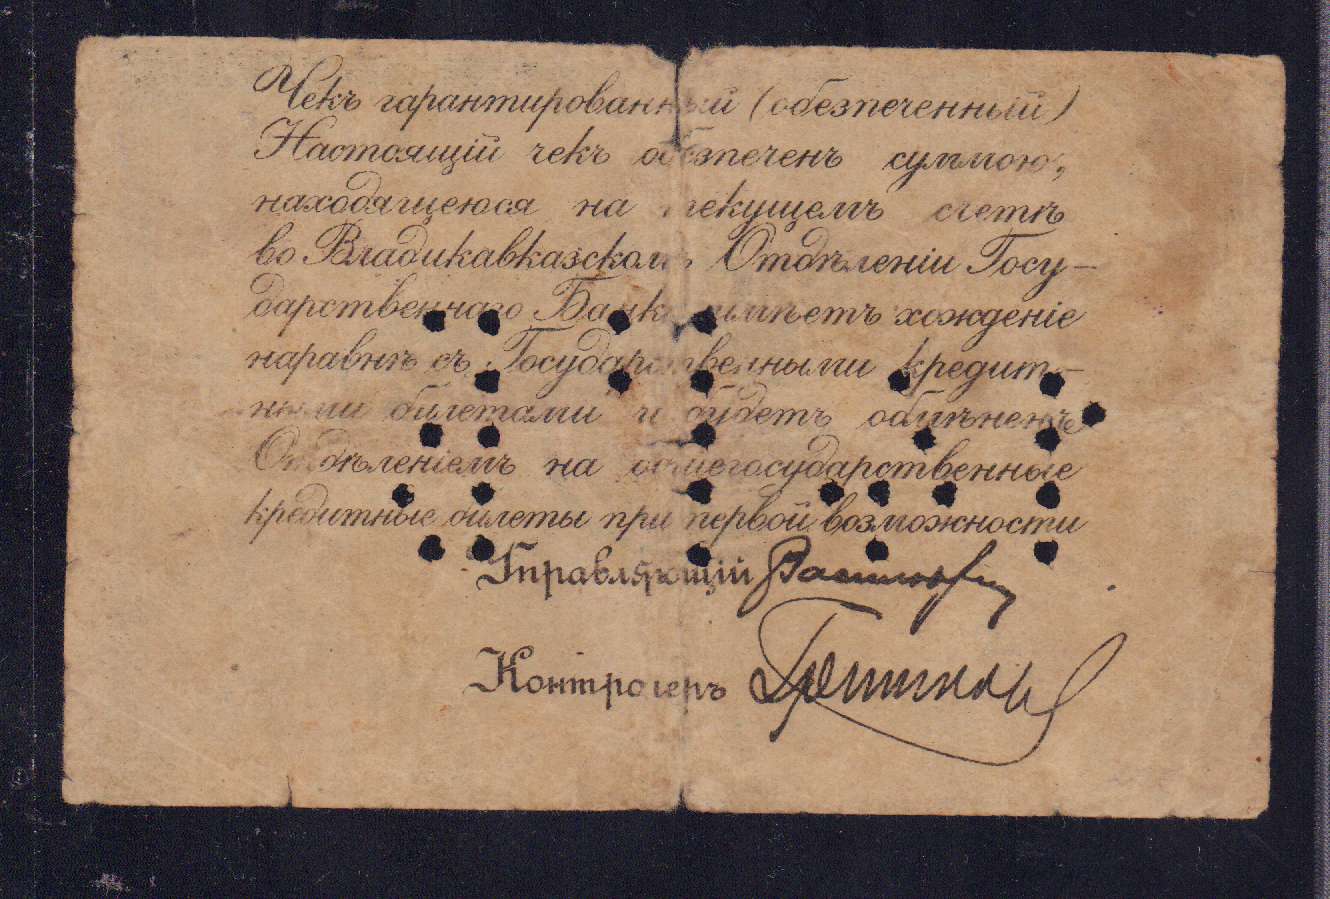 Чекъ гарантированный (обезпеченный)
Настоящій чекъ обезпеченъ суммою,
находящеюся на текущемъ счетѣ
во Владикавказскомъ Отдѣленіи Госу-
дарственнаго Банка имѣетъ хожденіе
наравнѣ съ Государственными кредит-
ными билетами и будетъ обмѣненъ
Отдѣленіемъ на общегосударственные
кредитные билеты при первой возможности
Управляющій
Контролеръ